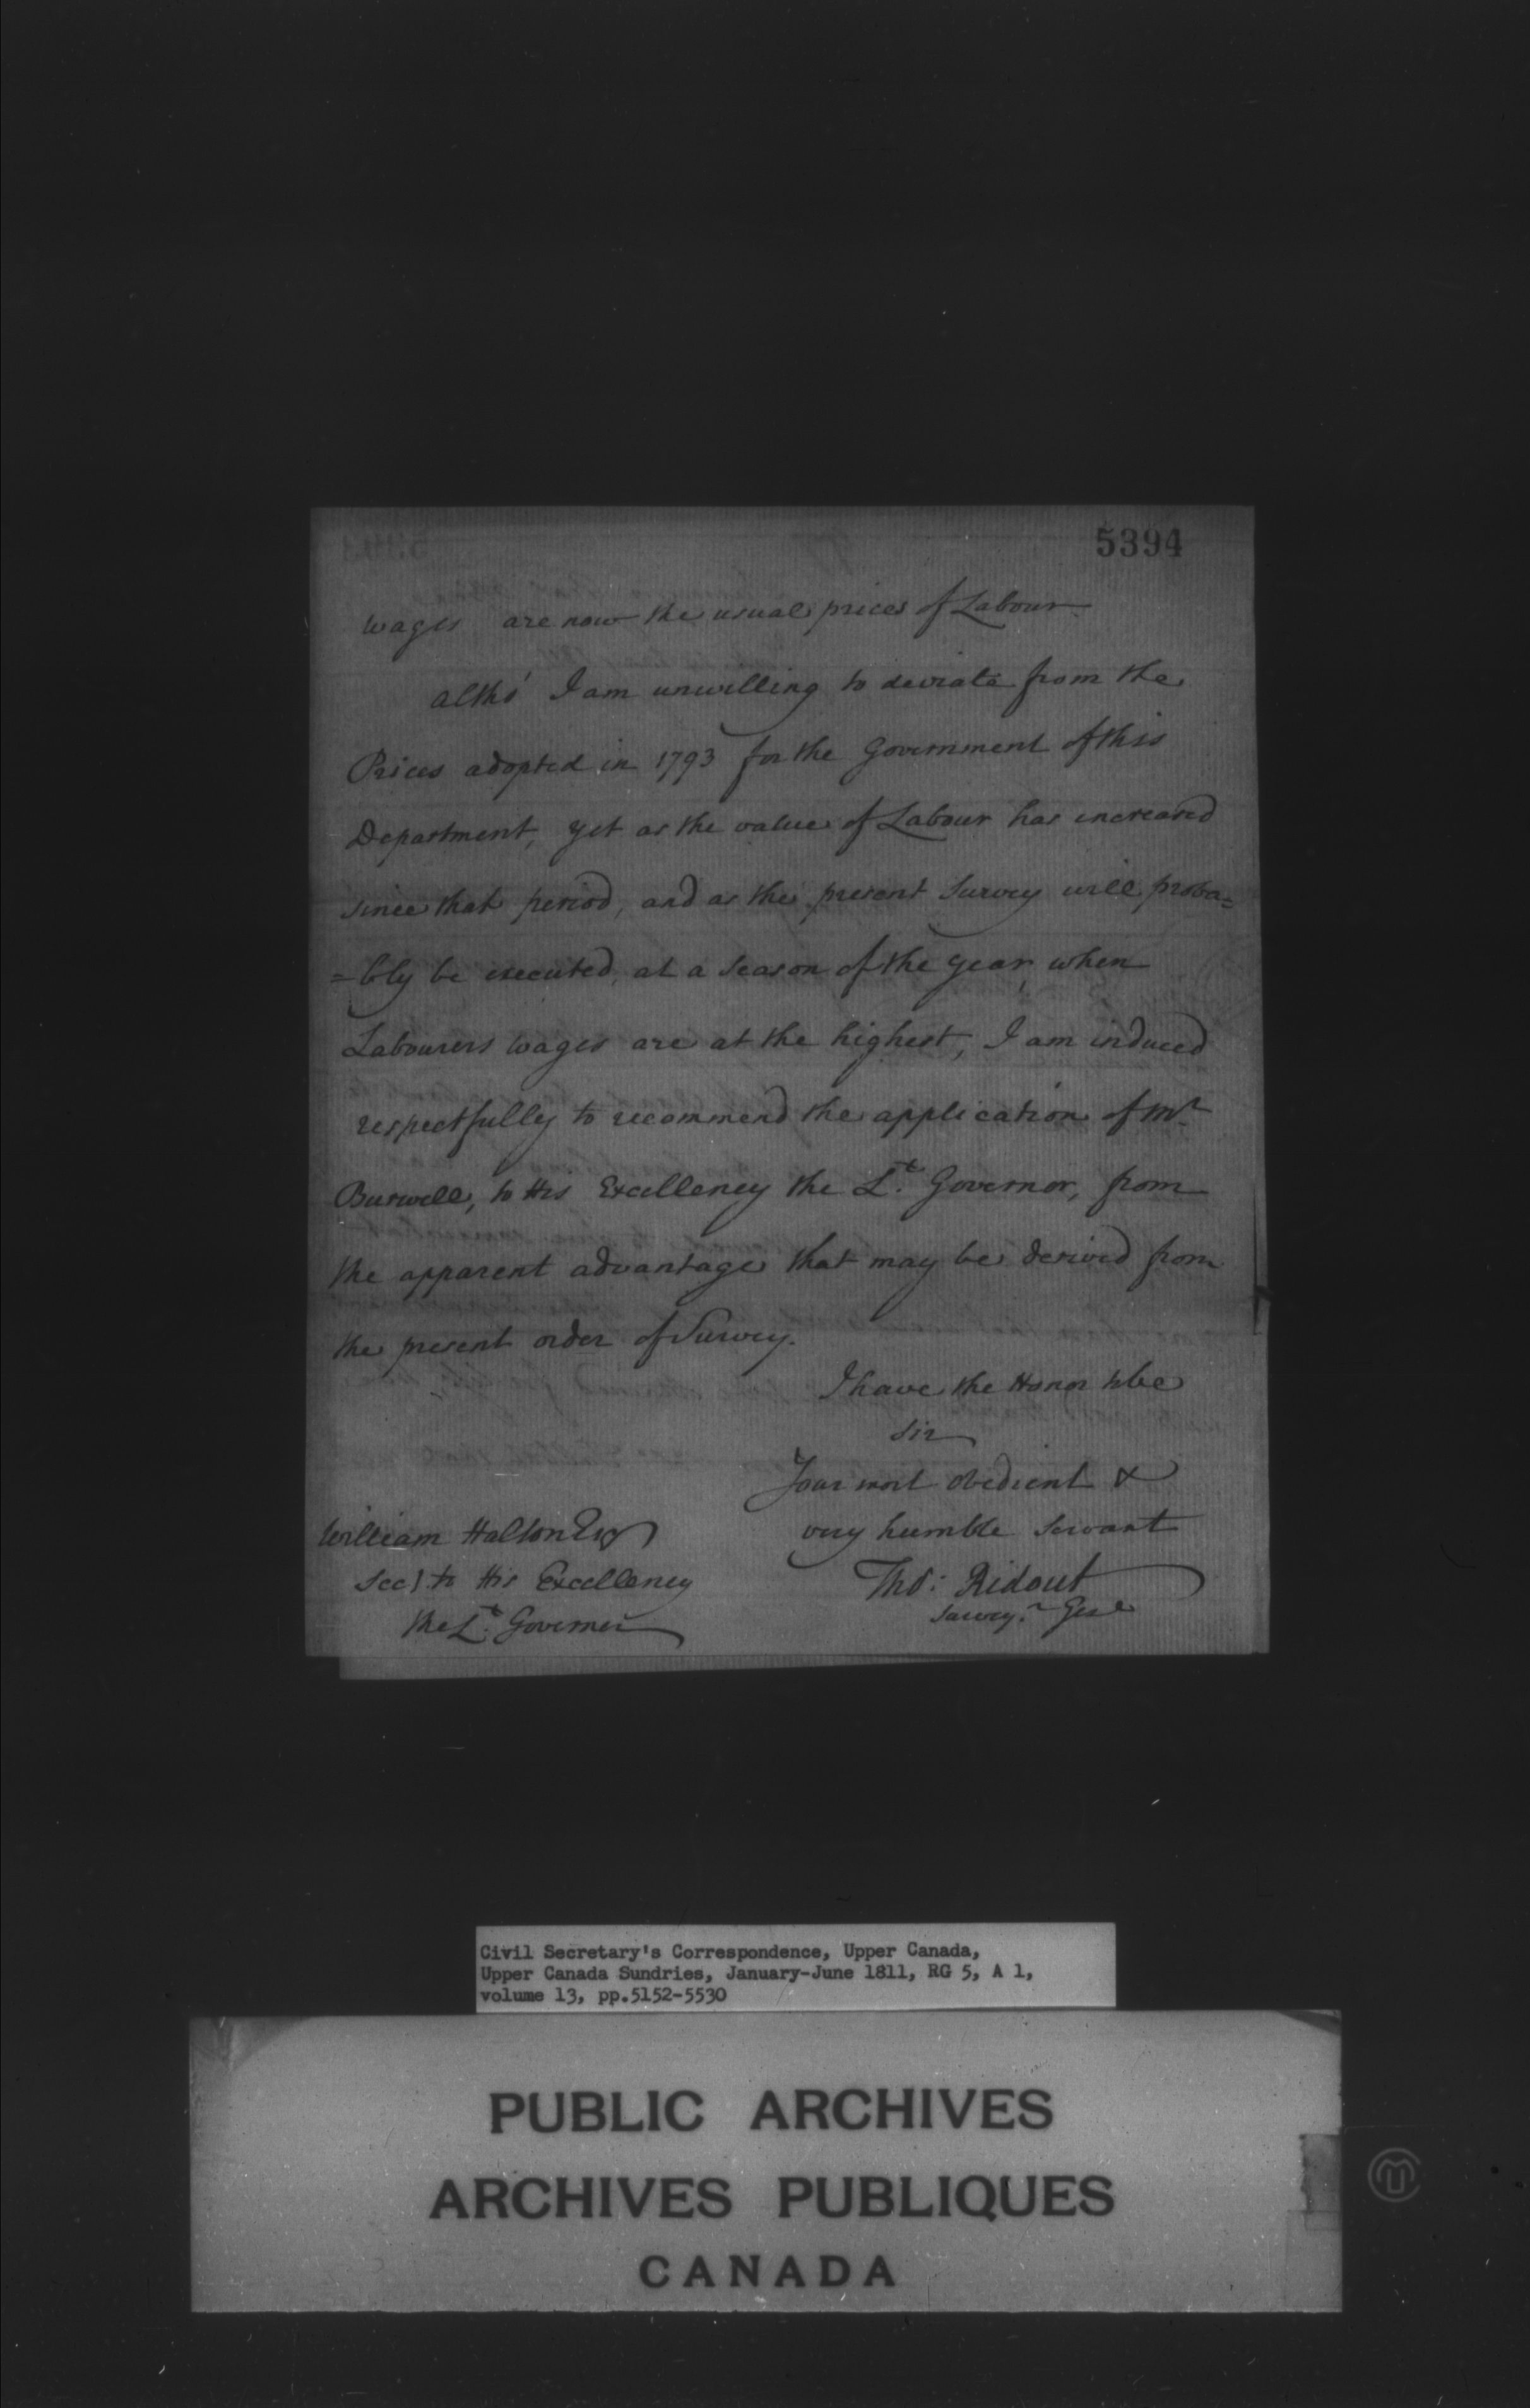 5394
wages are now the usual prices of Labour
altho' I am unwilling to deviate from the
Prices adopted in 1793 for the Government of this
Department, yet as the value of Labour has increased
since that period, and as the present Survey will proba=
=bly be executed, at a season of the year, when
Labourers wages are at the highest, I am induced
respectfully to recommend the application of Mr.
Burwell, to His Excellency the Lt. Governor, from
the apparent advantage that may be derived from
the present order of Survey.
I have the Honor to be
Sir
Your most obedient &
very humble Servant
Thos: Ridout
Survey.r Genl
William Halton Esqr
Secy. to His Excellency
the Lt. Governor
Civil Secretary's Correspondence, Upper Canada,
Upper Canada Sundries, January-June 1811, RG 5, A 1,
volume 13, pp.5152-5530
PUBLIC ARCHIVES
ARCHIVES PUBLIQUES
CANADA